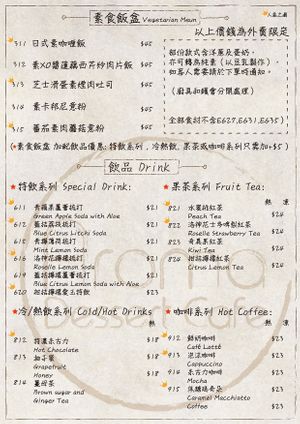 素食飯盒 Vegetarian Meun
人氣之選
以上價錢為外賣限定
311 日式素咖喱飯 $45
312 素XO醬蓮藕西芹炒肉片飯 $45
313 芝士滑蛋素燴肉吐司 $45
314 素卡邦尼意粉 $45
315 番茄素肉蘑菇意粉 $45
部份款式含洋蔥及蛋奶,
亦可轉為純素(以豆乳製作),
如客人需要請於下單時通知。
(廚具和鑊會分開處理)
全部食材不含E627,E631,E635)
(素食飯盒 加配飲品優惠: 特飲系列, 冷熱飲, 果茶或咖啡系列只需加$5)
飲品 Drink
特飲系列 Special Drink:
611 青蘋果蘆薈梳打 $21
Green Apple Soda with Aloe
612 藍桔荔枝梳打 $21
Blue Citrus Litchi Soda
615 青檸薄荷梳打 $21
Mint Lemon Soda
616 洛神花檸檬梳打 $21
Roselle Lemon Soda
619 藍桔檸檬蘆薈梳打 $21
Blue Citrus Lemon Soda with Aloe
620 柑桔檸檬愛玉特飲 $23
果茶系列 Fruit Tea:
熱 凍
821 水蜜桃紅茶 $24
Peach Tea
822 洛神花士多啤梨紅茶 $24
Roselle Strawberry Tea
823 奇異果紅茶 $24
Kiwi Tea
824 柑桔檸檬紅茶 $24
Citrus Lemon Tea
冷/熱飲系列 Cold/Hot Drinks
熱
812 特濃朱古力 $18
Hot Chocolate
813 柚子蜜 $18
Grapefruit
Honey
814 薑母茶 $18
Brown sugar and
Ginger Tea
咖啡系列 Hot Coffee:
熱 凍
912 鮮奶咖啡 $23
Café Latté
913 泡沫咖啡 $23
Cappuccino
914 朱古力咖啡 $23
Mocha
915 焦糖咖啡 $23
Caramel Macchiatto
Coffee $23